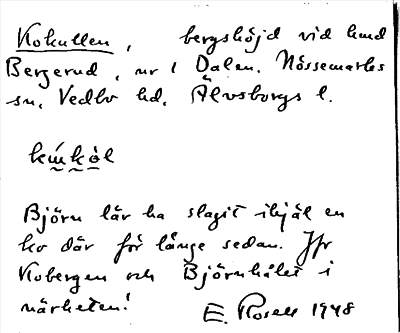 Kokullen, bergshöjd vid hmd
Bergerud, nr 1 Dalen. Nössemarks
sn, Vedbo hd, Älvsborgs l.
Björn lär ha slagit ihjäl en
ko där för länge sedan. Jfr
Kobergen och Björnhålet i
närheten!
E. Rosell 1948